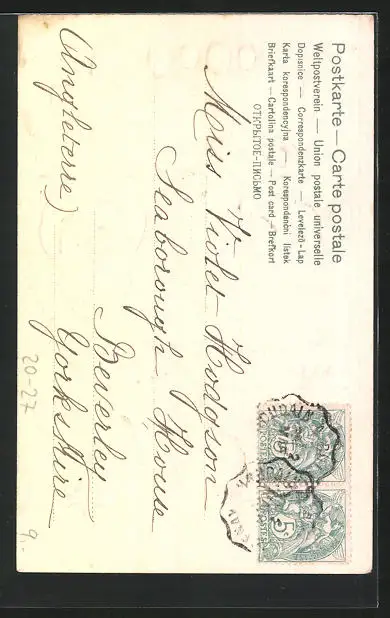 Postkarte — Carte postale
Weltpostverein — Union postale universelle
Dopisnice — Correspondenzkarte — Levelező-Lap
Karta korespondencyjna — Korespondenční listek
Briefkaart — Cartolina postale — Post card — Brefkort
ОТКРЫТОЕ-ПИСЬМО
Miss Violet Hodgson
Seaborough House
Beverley
Yorkshire
(Angleterre)
20-27
9.-
5c
POSTES
5c
POSTES